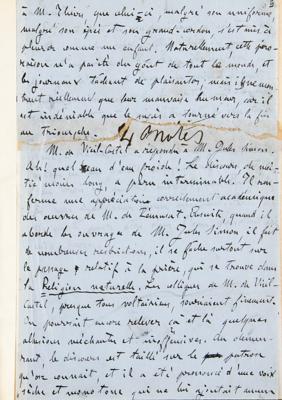 à M. Thiers que celui-ci, malgré son uniforme,
malgré son épée et son grand-cordon, s'est mis à
pleurer comme un enfant. Naturellement, cette péro-
raison n'a point été du goût de tout le monde et
les journaux tâchent de plaisanter, mais ils ne mon-
trent réellement que leur mauvaise humeur, car il
est indéniable que le succès a tourné vers la fin
au triomphe.
4 Notes
M. de Vieil-Castel a répondu à M. Jules Simon.
Ah! quel seau d'eau froide! Le discours de moi-
tié moins long, a paru interminable. Il ren-
ferme une appréciation correctement académique
des œuvres de M. de Rémusat. Ensuite, quand il
aborde les ouvrages de M. Jules Simon il fait
de nombreuses restrictions, il se fâche surtout sur
le passage relatif à la prière, qui se trouve dans
la Religion naturelle. Les collègues de M. de Vieil-
Castel, presque tous voltairiens, souriaient finement.
On pourrait encore relever çà et là quelques
allusions méchantes et inoffensives. Au demeu-
rant, le discours est taillé sur le patron
qu'on connaît, et il a été prononcé d'une voix
sèche et monotone qui na lui ajoutait aucun